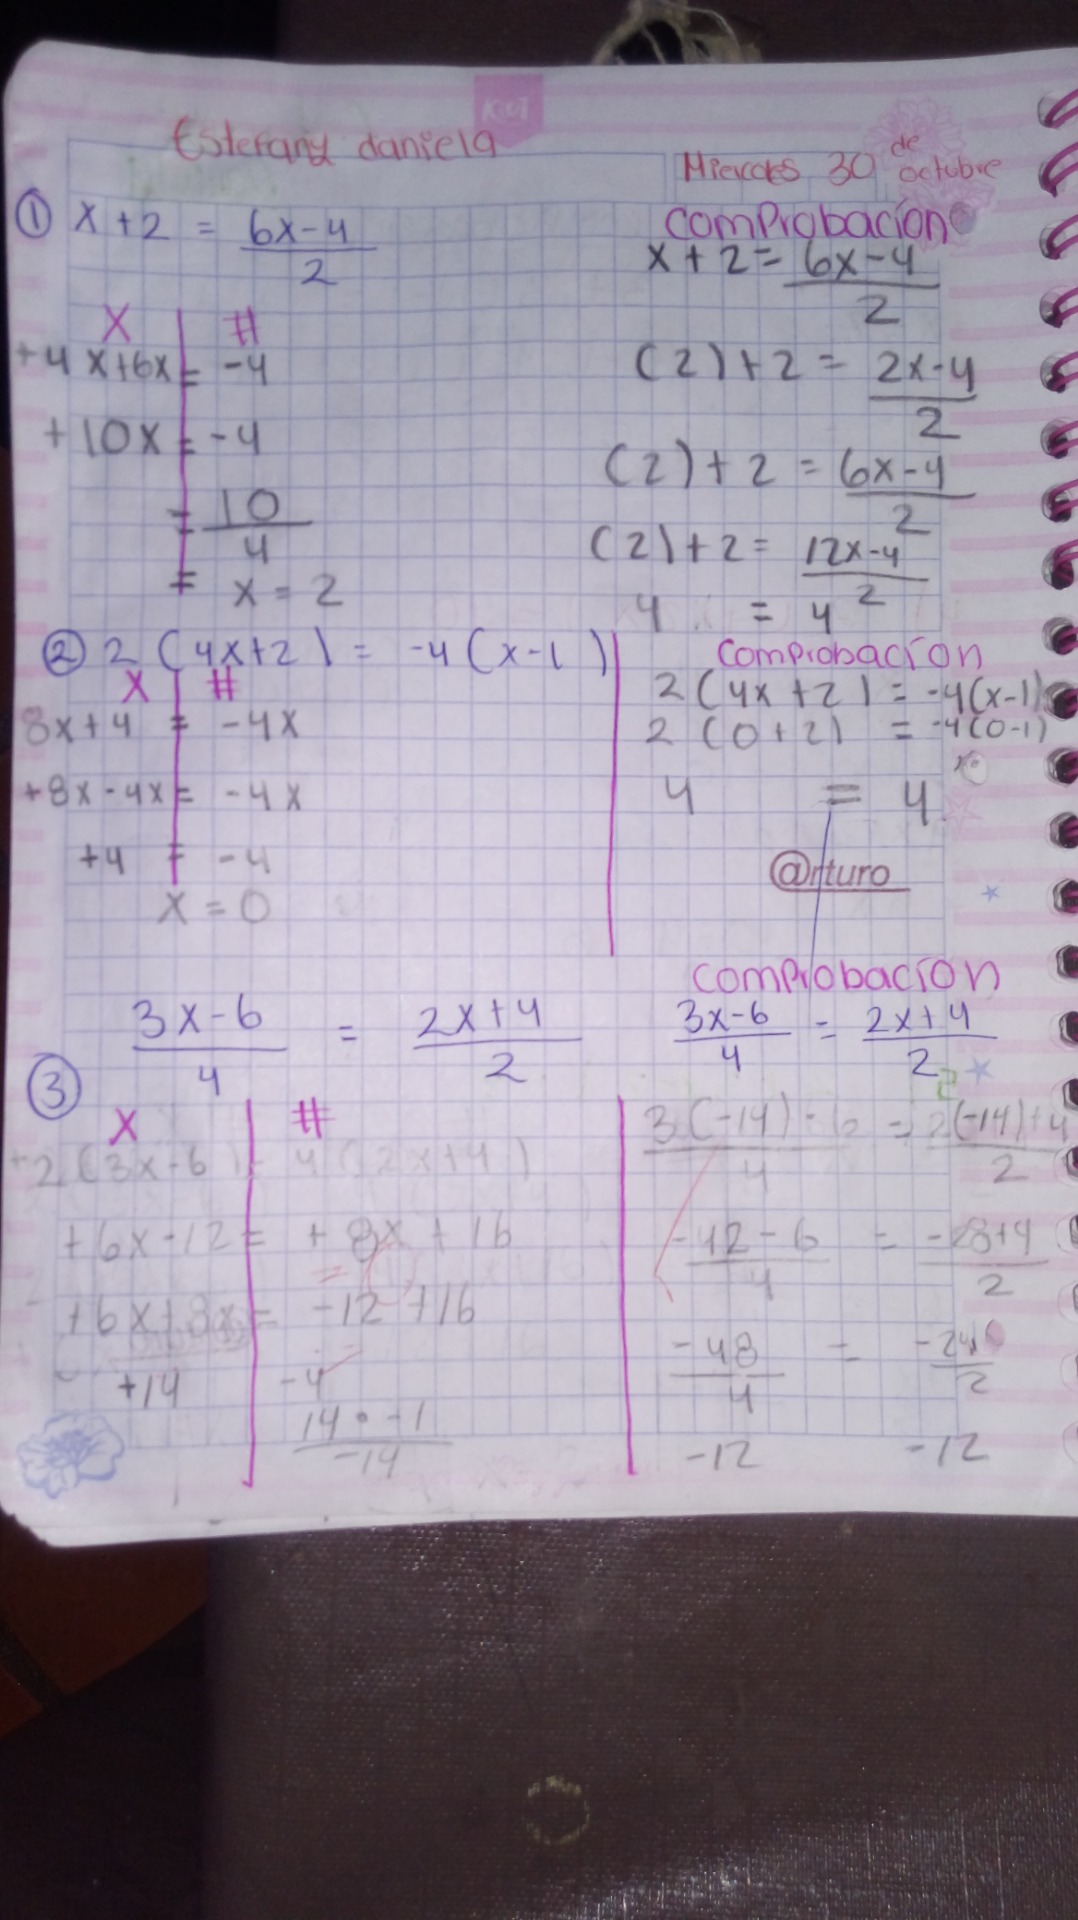 Esterany daniela
Miercoes 30 de octubre
① x + 2 = 6x-4 / 2
x | #
+4 x+6x = -4
+10x = -4
= 10 / 4
= x = 2
comprobacion
x + 2 = 6x-4 / 2
(2) + 2 = 2x-4 / 2
(2) + 2 = 6x-4 / 2
(2) + 2 = 12x-4 / 2
4 = 4
② 2 (4x+2) = -4 (x-1)
x | #
8x+4 = -4x
+8x-4x = -4x
+4 = -4
x = 0
comprobacion
2 (4x +2) = -4(x-1)
2 (0+2) = -4(0-1)
4 = 4
@rturo
③ 3x-6 / 4 = 2x+4 / 2
x | #
+2(3x-6) = 4(2x+4)
+6x-12 = +8x+16
+6x+8x = -12+16
+14 -4
14 • -1 / -14
comprobacion
3x-6 / 4 = 2x+4 / 2
3(-14)-6 / 4 = 2(-14)+4 / 2
-42-6 / 4 = -28+4 / 2
-48 / 4 = -24 / 2
-12 -12